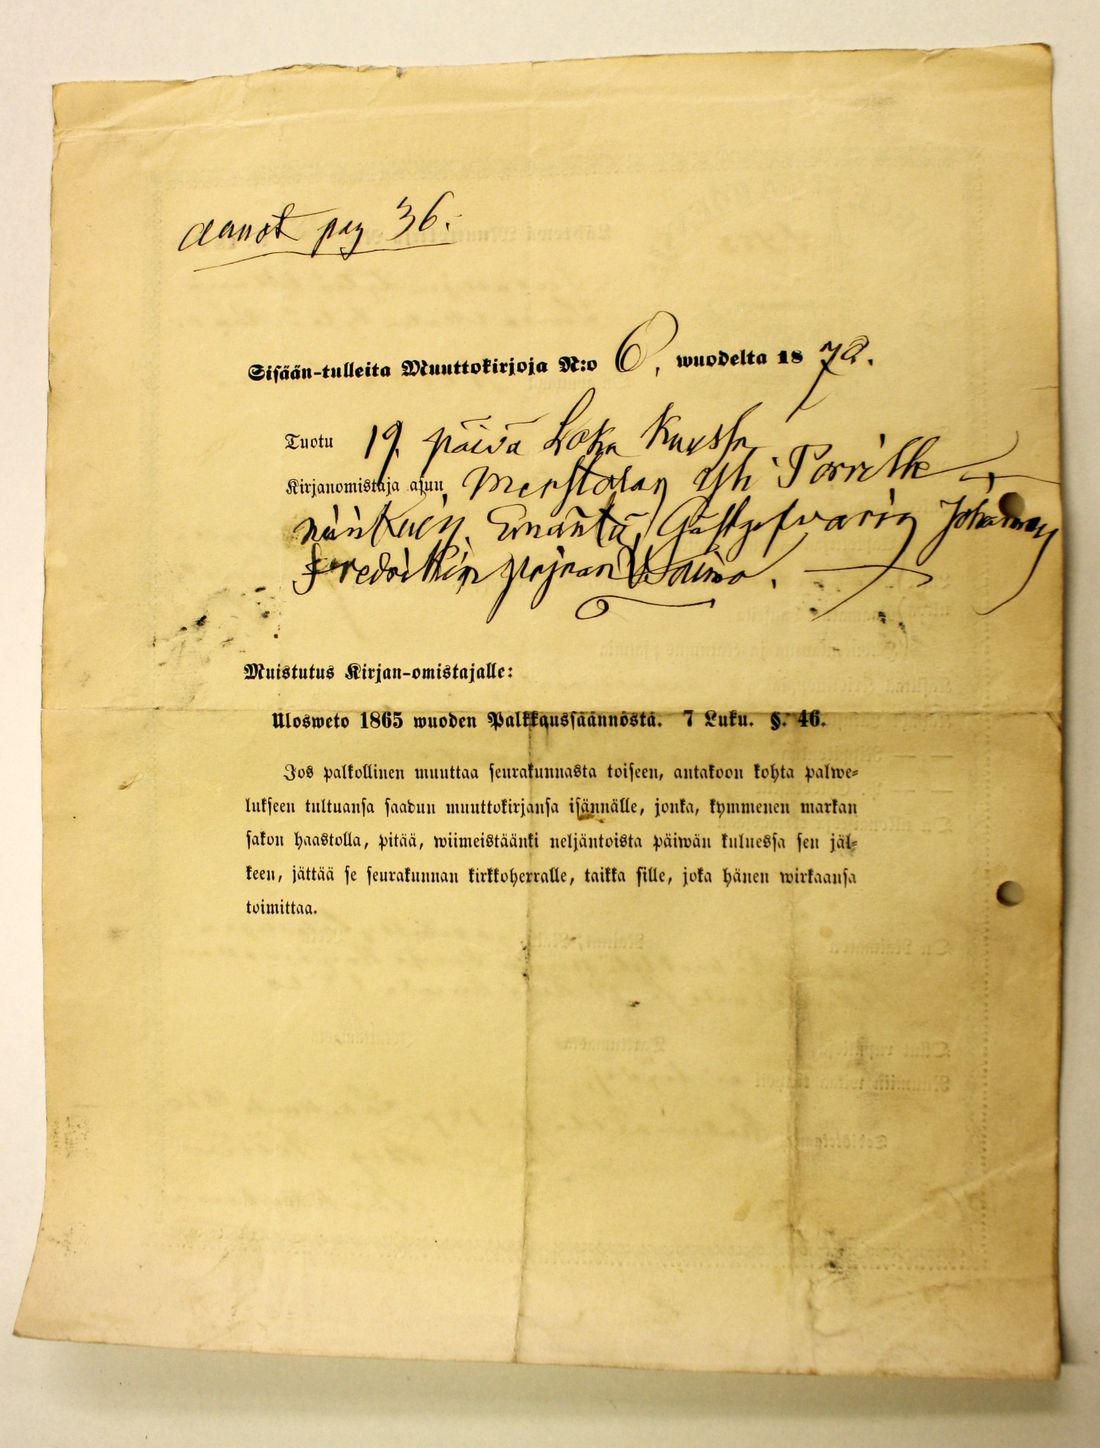 pag 36.
Sisään-tulleita Muuttokirjoja N:o 6, wuodelta 1872.
Tuotu 19. päivä Loka Kuussa
Kirjanomistaja asuu
Emäntä, Gästgifvarin Johannes
Fredrikin pojan
Muistutus Kirjan-omistajalle:
Ulosweto 1865 wuoden Palkkaussäännöstä. 7 Luku. §. 46.
Jos palkollinen muuttaa seurakunnasta toiseen, antakoon kohta palwe-
lukseen tultuansa saadun muuttokirjansa isännälle, jonka, kymmenen markan
sakon haastolla, pitää, wiimeistäänki neljäntoista päiwän kuluessa sen jäl-
keen, jättää se seurakunnan kirkkoherralle, taikka sille, joka hänen wirkaansa
toimittaa.